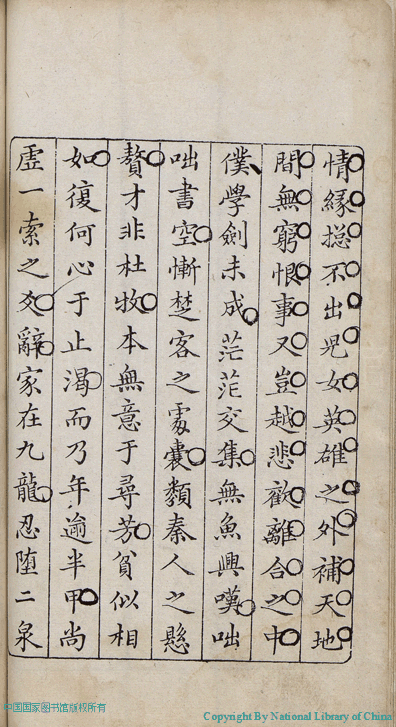 情緣捴不出児女英雄之外補天地
間無窮恨事又豈越悲歡離合之中
僕學劍未成茫茫交集無魚興嘆咄
咄書空慚楚客之處囊類秦人之懸
贅才非杜牧本無意于尋芳貧似相
如復何心于止渴而乃年逾半甲尚
虛一索之爻辭家在九龍忍墮二泉
中国国家图书馆版权所有
Copyright By National Library of China